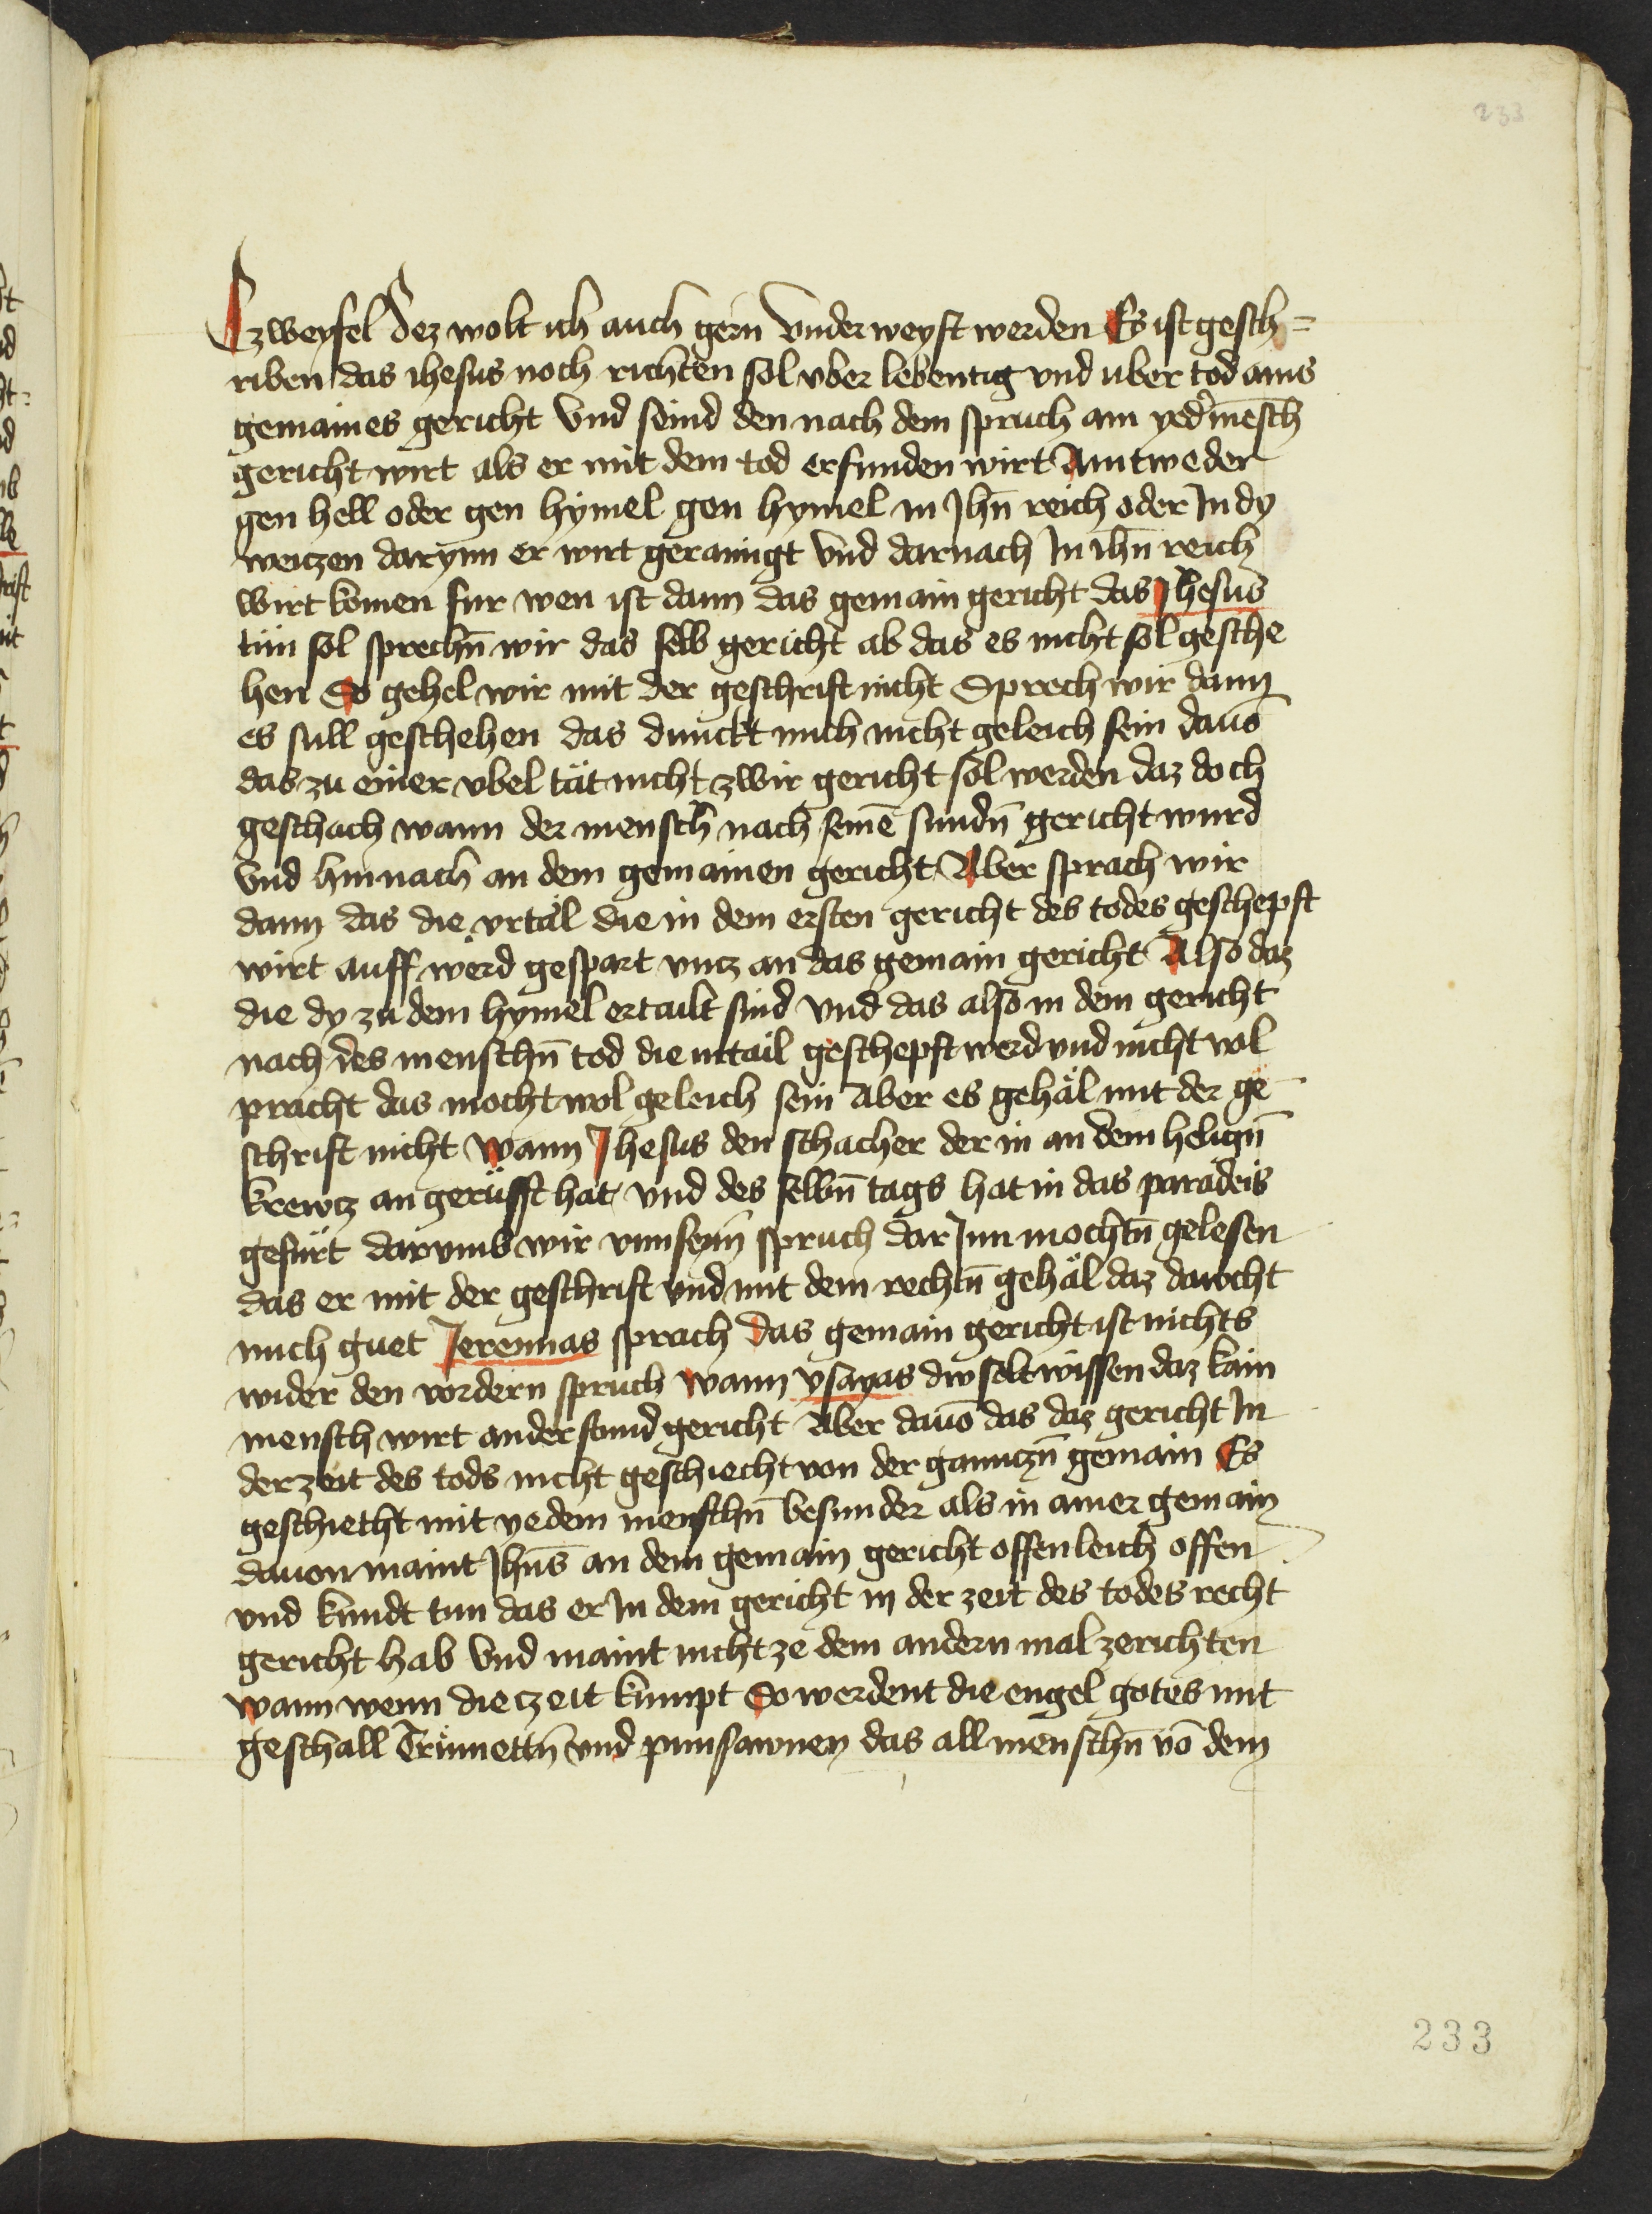 233
Czweyfel Dez wolt ich auch gern vnderweyst werden Es ist gesch=
riben das ihesus noch richten sol vber lebentig vnd uber tod ains
gemaines gericht Vnd seind den nach dem spruch ain yed' mēsch
gericht wirt als er mit dem tod erfunden wirt Aintweder
gen hell oder gen hymel gen hymel in Jhn̄ reich oder In dy
weiczen darynn er wirt gerainigt vnd darnach In ihn̄ reich
wirt komen fur wen ist dann das gemain gericht das Jhesus
tün sol sprechn̄ wir das selb gericht ab das es nicht sol gesche
hen So gehel wir mit der geschrift nicht Sprech wir dann
es sull geschehen das dunckt mich nicht geleich sein dauō
das zu einer vbel tät nicht zwir gericht sol werden daz doch
geschach wann der mensch nach seinē sundn̄ gericht wurd
Vnd hinnach an dem gemainen gericht Aber sprach wir
dann das die vrtäl die in dem ersten gericht des todes geschepft
wirt auff werd gespart vncz an das gemain gericht Also daz
die dy zu dem hymel ertailt sind vnd das also in dem gericht
nach des menschn̄ tod die vrtail geschepft werd vnd nicht vol
pracht das mocht wol geleich sein Aber es gehäl mit der ge
schrift nicht wann Jhesus den schacher der in an dem helign̄
krewcz an gerüfft hat vnd des selbn̄ tags hat in das paradeis
gefürt darvmb wir vnnseyn̄ spruch darJnn mochtn̄ gelesen
das er mit der geschrift vnd mit dem rechtn̄ gehäl daz dawcht
mich guet Jeremias sprach das gemain gericht ist nichts
wider den vordern spruch wann ysayas dw solt wissen daz kain
mensch wirt anderstund gericht Aber dauō das daz gericht In
der zeit des tods nicht geschiecht von der ganczn̄ gemain Es
geschiecht mit yedem menschn̄ besunder als in ainer gemain
dauon maint Jhn̄s an dem gemain gericht offenleich offen
vnd kundt tun das er In dem gericht in der zeit des todes recht
gericht hab Vnd maint nicht ze dem andern mal zerichten
wann wenn die czeit kumpt So werdent die engel gotes mit
geschall Trümettn̄ vnd pusawnen das all menschn̄ vō dem
233